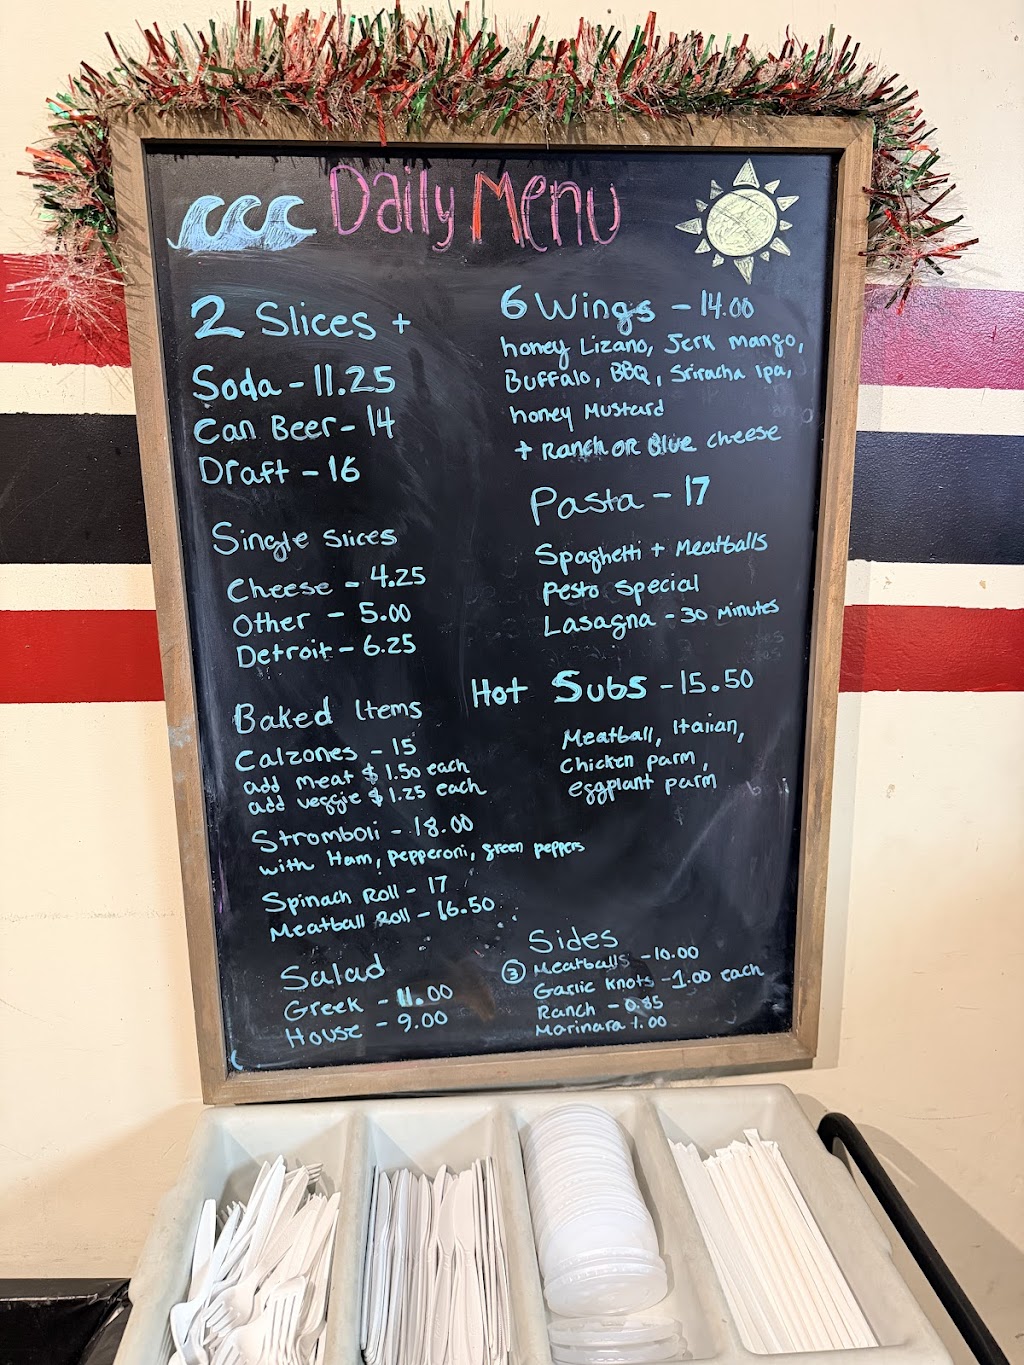 Daily Menu
2 Slices +
Soda - 11.25
Can Beer - 14
Draft - 16
Single Slices
Cheese - 4.25
Other - 5.00
Detroit - 6.25
Baked Items
Calzones - 15
add meat $ 1.50 each
add veggie $ 1.25 each
Stromboli - 18.00
with Ham, pepperoni, green peppers
Spinach Roll - 17
Meatball Roll - 16.50
Salad
Greek - 11.00
House - 9.00
6 Wings - 14.00
honey Lizano, Jerk mango,
Buffalo, BBQ, Sriracha Ipa,
honey Mustard
+ Ranch OR Blue cheese
Pasta - 17
Spaghetti + Meatballs
Pesto Special
Lasagna - 30 Minutes
Hot Subs - 15.50
Meatball, Italian,
Chicken parm,
eggplant parm
Sides
③ Meatballs - 10.00
Garlic Knots - 1.00 each
Ranch - 0.85
Marinara 1.00